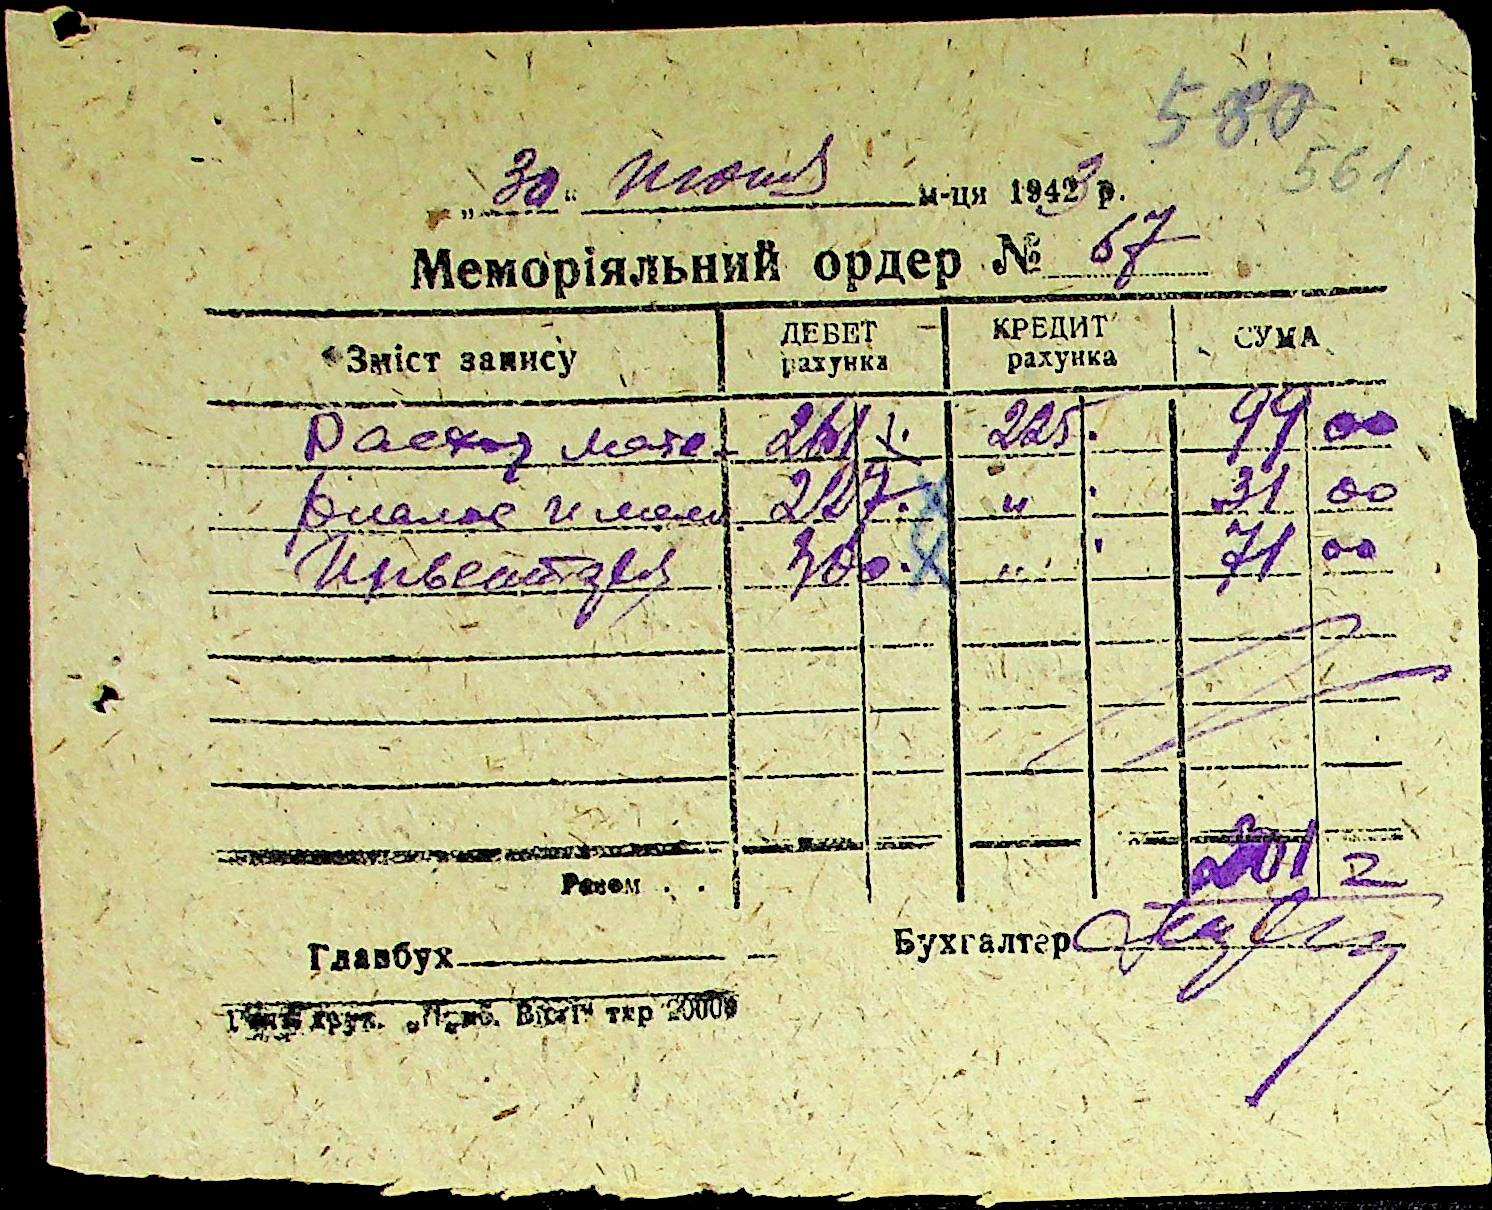 580
561
„30“ июня м-ця 1943 р.
Меморіяльний ордер № 67
Зміст запису ДЕБЕТ рахунка КРЕДИТ рахунка СУМА
Расход мате- 261 225. 99 00
риалов и мал 227. " 31 00
Инвентаря 300. " 71 00
Разом . . 201 2
Главбух Бухгалтер
друк. Вісті" тир 20000